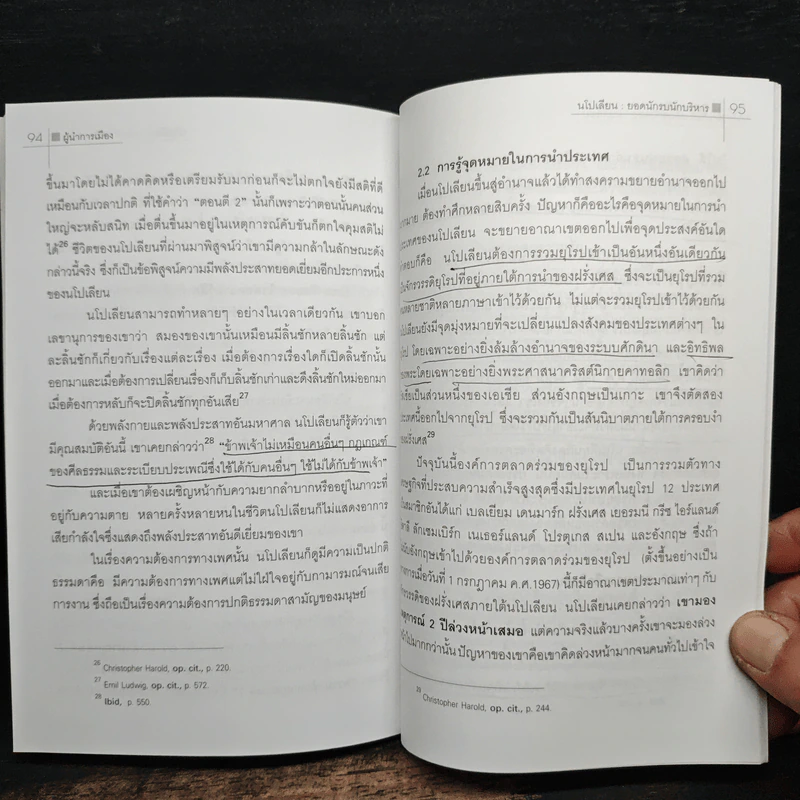 94 ผู้นำการเมือง
ขึ้นมาโดยไม่ได้คาดคิดหรือเตรียมรับมาก่อนก็จะไม่ตกใจยังมีสติที่ดี
เหมือนกับเวลาปกติ ที่ใช้คำว่า “ตอนตี 2” นั้นก็เพราะว่าตอนนั้นคนส่วน
ใหญ่จะหลับสนิท เมื่อตื่นขึ้นมาอยู่ในเหตุการณ์คับขันก็ตกใจคุมสติไม่
ได้26 ชีวิตของนโปเลียนที่ผ่านมาพิสูจน์ว่าเขามีความกล้าในลักษณะดัง
กล่าวนี้จริง ซึ่งก็เป็นข้อพิสูจน์ความมีพลังประสาทยอดเยี่ยมอีกประการหนึ่ง
ของนโปเลียน
นโปเลียนสามารถทำหลายๆ อย่างในเวลาเดียวกัน เขาบอก
เลขานุการของเขาว่า สมองของเขานั้นเหมือนมีลิ้นชักหลายลิ้นชัก แต่
ละลิ้นชักก็เกี่ยวกับเรื่องแต่ละเรื่อง เมื่อต้องการเรื่องใดก็เปิดลิ้นชักนั้น
ออกมาและเมื่อต้องการเปลี่ยนเรื่องก็เก็บลิ้นชักเก่าและดึงลิ้นชักใหม่ออกมา
เมื่อต้องการหลับก็จะปิดลิ้นชักทุกอันเสีย27
ด้วยพลังกายและพลังประสาทอันมหาศาล นโปเลียนก็รู้ตัวว่าเขา
มีคุณสมบัติอันนี้ เขาเคยกล่าวว่า28 “ข้าพเจ้าไม่เหมือนคนอื่นๆ กฎเกณฑ์
ของศีลธรรมและระเบียบประเพณีซึ่งใช้ได้กับคนอื่นๆ ใช้ไม่ได้กับข้าพเจ้า”
และเมื่อเขาต้องเผชิญหน้ากับความยากลำบากหรืออยู่ในภาวะที่
อยู่กับความตาย หลายครั้งหลายหนในชีวิตนโปเลียนก็ไม่แสดงอาการ
เสียกำลังใจซึ่งแสดงถึงพลังประสาทอันดีเยี่ยมของเขา
ในเรื่องความต้องการทางเพศนั้น นโปเลียนก็ดูมีความเป็นปกติ
ธรรมดาคือ มีความต้องการทางเพศแต่ไม่ใฝ่ใจอยู่กับกามารมณ์จนเสีย
การงาน ซึ่งถือเป็นเรื่องความต้องการปกติธรรมดาสามัญของมนุษย์
26 Christopher Harold, op. cit., p. 220.
27 Emil Ludwig, op. cit., p. 572.
28 Ibid, p. 550.
นโปเลียน : ยอดนักรบนักบริหาร 95
2.2 การรู้จุดหมายในการนำประเทศ
เมื่อนโปเลียนขึ้นสู่อำนาจแล้วได้ทำสงครามขยายอำนาจออกไป
ต้องทำศึกหลายสิบครั้ง ปัญหาก็คืออะไรคือจุดหมายในการนำ
ประเทศของนโปเลียน จะขยายอาณาเขตออกไปเพื่อจุดประสงค์อันใด
คำตอบก็คือ นโปเลียนต้องการรวมยุโรปเข้าเป็นอันหนึ่งอันเดียวกัน
เป็นจักรวรรดิยุโรปที่อยู่ภายใต้การนำของฝรั่งเศส ซึ่งจะเป็นยุโรปที่รวม
หลายชาติหลายภาษาเข้าไว้ด้วยกัน ไม่แต่จะรวมยุโรปเข้าไว้ด้วยกัน
นโปเลียนยังมีจุดมุ่งหมายที่จะเปลี่ยนแปลงสังคมของประเทศต่างๆ ใน
ยุโรป โดยเฉพาะอย่างยิ่งล้มล้างอำนาจของระบบศักดินา และอิทธิพล
ของพระโดยเฉพาะอย่างยิ่งพระศาสนาคริสต์นิกายคาทอลิก เขาคิดว่า
เป็นส่วนหนึ่งของเอเชีย ส่วนอังกฤษเป็นเกาะ เขาจึงตัดสอง
ประเทศนี้ออกไปจากยุโรป ซึ่งจะรวมกันเป็นสันนิบาตภายใต้การครอบงำ
ของฝรั่งเศส29
ปัจจุบันนี้องค์การตลาดร่วมของยุโรป เป็นการรวมตัวทาง
เศรษฐกิจที่ประสบความสำเร็จสูงสุดซึ่งมีประเทศในยุโรป 12 ประเทศ
เป็นสมาชิกอันได้แก่ เบลเยียม เดนมาร์ก ฝรั่งเศส เยอรมนี กรีซ ไอร์แลนด์
อิตาลี ลักเซมเบิร์ก เนเธอร์แลนด์ โปรตุเกส สเปน และอังกฤษ ซึ่งถ้า
อังกฤษเข้าไปด้วยองค์การตลาดร่วมของยุโรป (ตั้งขึ้นอย่างเป็น
ทางการเมื่อวันที่ 1 กรกฎาคม ค.ศ.1967) นี้ก็มีอาณาเขตประมาณเท่าๆ กับ
จักรวรรดิของฝรั่งเศสภายใต้นโปเลียน นโปเลียนเคยกล่าวว่า เขามอง
เหตุการณ์ 2 ปีล่วงหน้าเสมอ แต่ความจริงแล้วบางครั้งเขาจะมองล่วง
หน้าไปมากกว่านั้น ปัญหาของเขาคือเขาคิดล่วงหน้ามากจนคนทั่วไปเข้าใจ
29 Christopher Harold, op. cit., p. 244.